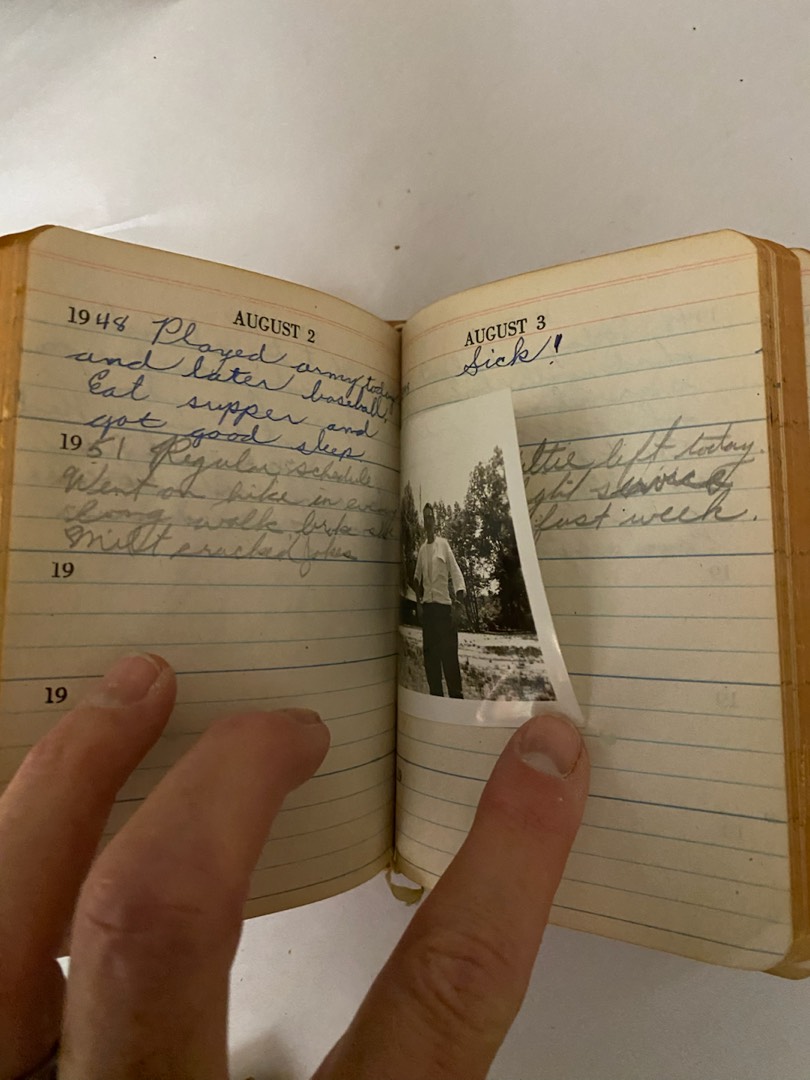 AUGUST 2
1948 Played army today
and later baseball.
Eat supper and
got good sleep.
1951 Regular schedule
Went on hike in
long walk
Milt cracked jokes
19
19
AUGUST 3
Sick!
left today.
service
fast week.